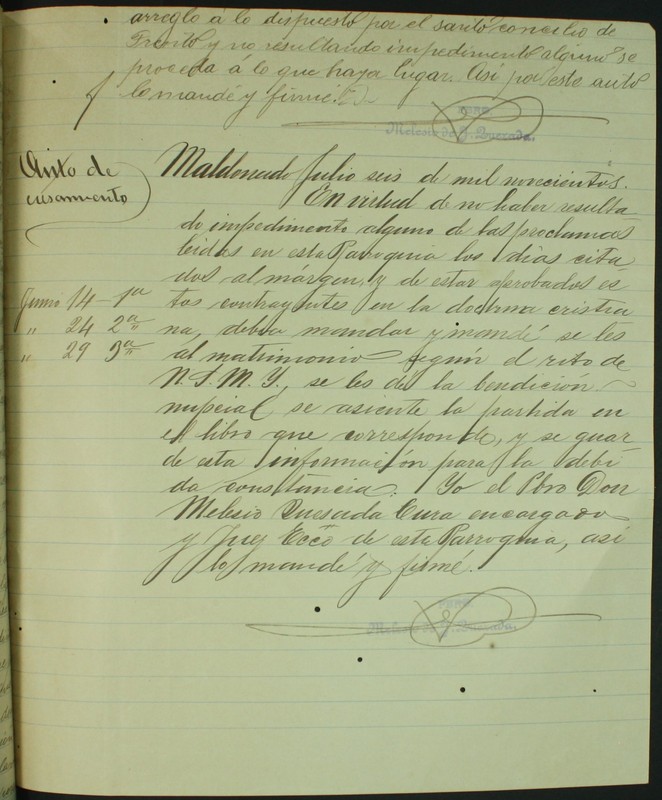 arreglo á lo dispuesto por el santo concilio de
Trento y no resultando impedimento alguno se
proceda á lo que haya lugar. Así por este auto
lo mandé y firmé.
PBRO.
Melesio de J. Quezada.
Auto de
casamiento
Maldonado Julio seis de mil novecientos.
En virtud de no haber resulta-
do impedimento alguno de las proclamas
leidas en esta Parroquia los dias cita-
dos al márgen, y de estar aprobados es-
tos contrayentes en la doctrina cristia-
na, debia mandar y mandé se les
al matrimonio segun el rito de
N.S.M.Y., se les dé la bendición
nupcial se asiente la partida en
el libro que corresponde, y se guar-
de esta información para la debi-
da constancia. Yo el Pbro Don
Melesio Quesada Cura encargado
y Juez Ecco de esta Parroquia, asi
lo mandé y firmé.
Junio 14 - 1a
" 24 2a
" 29 3a
PBRO.
Melesio de J. Quezada.